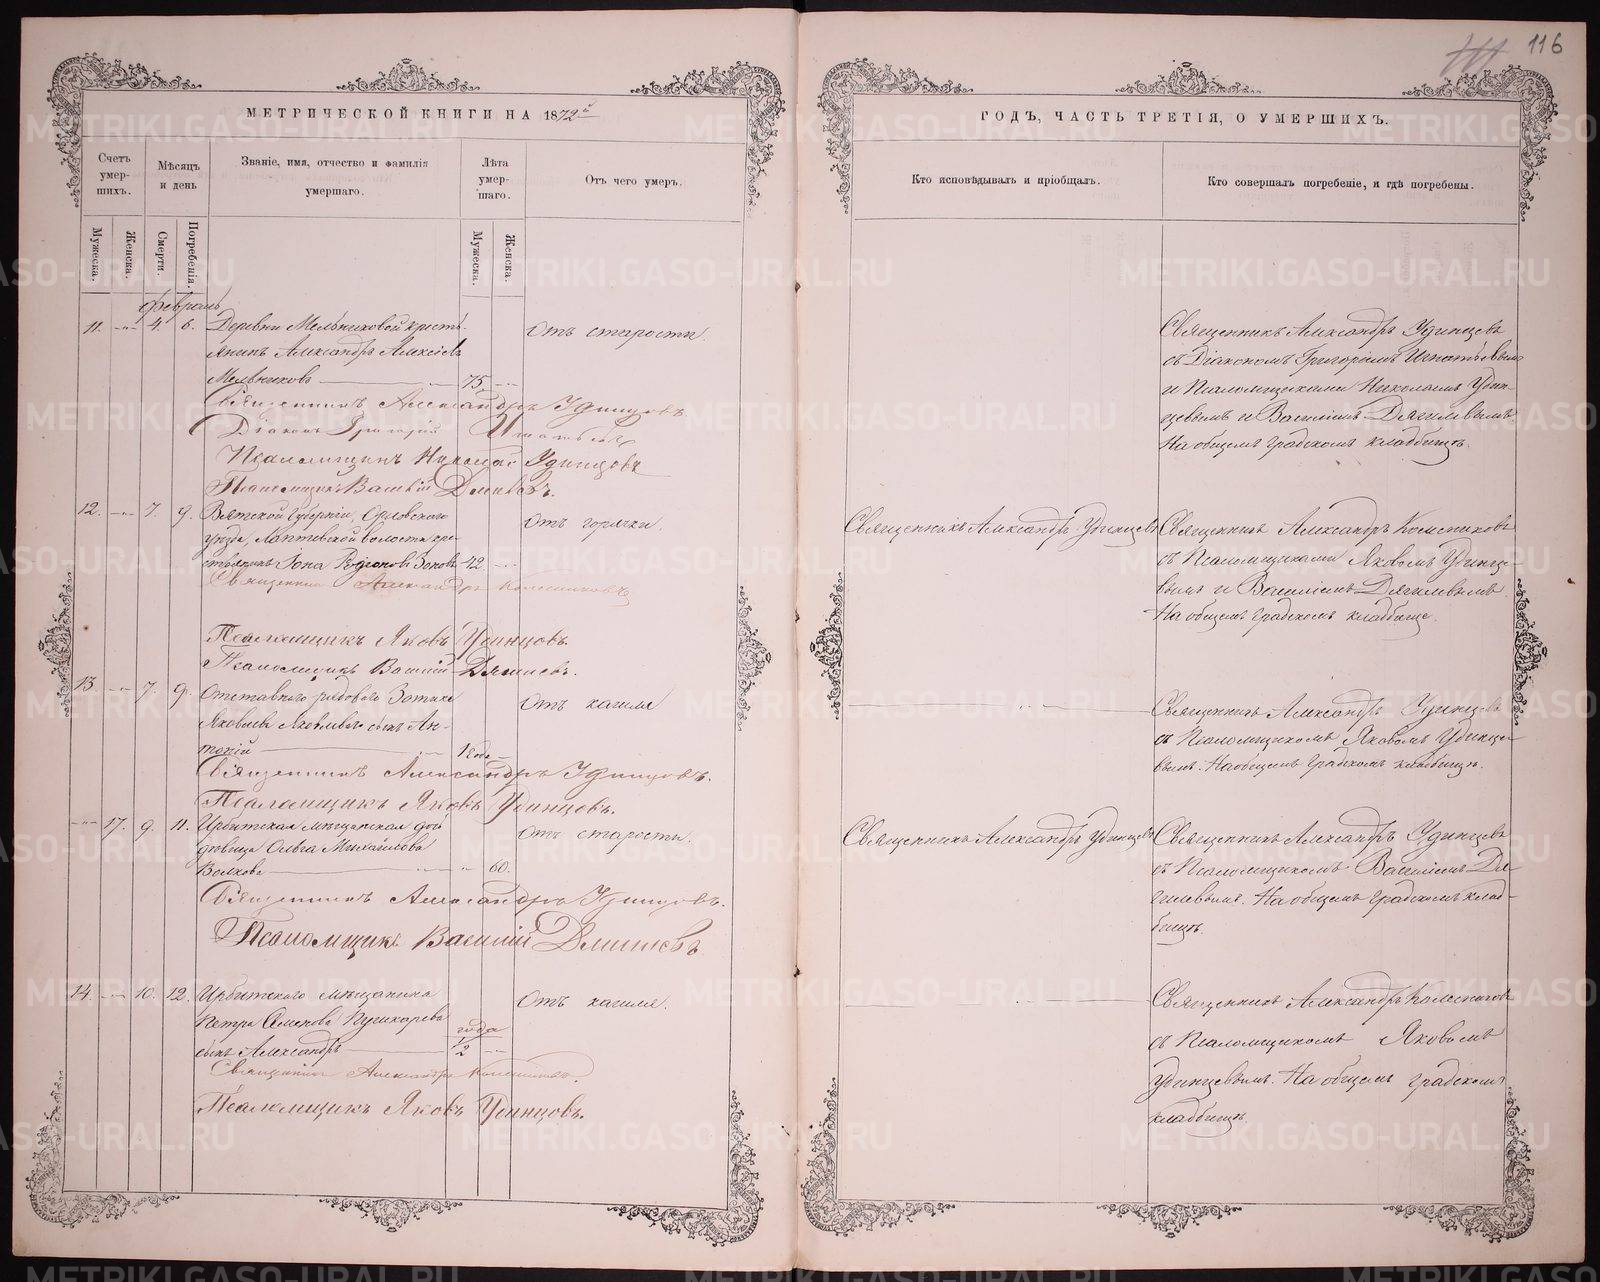 116
МЕТРИЧЕСКОЙ КНИГИ НА 1872й
ГОДЪ, ЧАСТЬ ТРЕТІЯ, О УМЕРШИХЪ.
Счетъ умер-
шихъ.
Мѣсяцъ
и день
Званіе, имя, отчество и фамилія
умершаго.
Лѣта
умер-
шаго.
Отъ чего умеръ.
Кто исповѣдывалъ и пріобщалъ.
Кто совершалъ погребеніе, и гдѣ погребены.
Мужеска.
Женска.
Смерти.
Погребенія.
Мужеска.
Женска.
Февраль
11. 4. 6. Деревни Мельниковой кресть-
янинъ Александръ Алексѣевъ
Мельниковъ 75.
Отъ старости.
Священникъ Александръ Удинцевъ
съ Діакономъ Григоріемъ Игнатьевымъ
и Псаломщиками Николаемъ Удин-
цевымъ и Василіемъ Дягилевымъ
На общемъ градскомъ кладбищѣ.
Священникъ Александръ Удинцовъ
Діаконъ Григорій Игнатьевъ
Псаломщикъ Николай Удинцовъ
Псаломщикъ Василій Дягилевъ.
12. 7. 9. Вятской губерніи, Орловскаго
уѣзда, Лаптевской волости кре-
стьянинъ Іона Родіоновъ Зоновъ 42
Отъ горячки.
Священникъ Александръ Удинцевъ
Священникъ Александръ Колесниковъ
съ Псаломщиками Яковомъ Удинце-
вымъ и Василіемъ Дягилевымъ.
На общемъ градскомъ кладбище.
Священникъ Александръ Колесниковъ
Псаломщикъ Яковъ Удинцовъ.
Псаломщикъ Василій Дягилевъ.
13. 7. 9. Отставнаго рядоваго Зотика
Яковлева Яковлева сынъ Ан-
тоній 1
Отъ кашля
Священникъ Александръ Удинцевъ
съ Псаломщикомъ Яковомъ Удинце-
вымъ. На общемъ градскомъ кладбищѣ.
Священникъ Александръ Удинцовъ.
Псаломщикъ Яковъ Удинцовъ.
17. 9. 11. Ирбитская мѣщанская
вдовица Ольга Михайлова
Волкова 60.
Отъ старости.
Священникъ Александръ Удинцевъ
Священникъ Александръ Удинцевъ
съ Псаломщикомъ Василіемъ Дя-
гилевымъ. На общемъ градскомъ клад-
бищѣ.
Священникъ Александръ Удинцовъ.
Псаломщикъ Василій Дягилевъ
14. 10. 12. Ирбитскаго мѣщанина
Петра Семенова Пушкарева
сынъ Александръ
года
1/2
Отъ кашля.
Священникъ Александръ Колесниковъ
съ Псаломщикомъ Яковомъ
Удинцевымъ. На общемъ градскомъ
кладбищѣ.
Священникъ Александръ Колесниковъ.
Псаломщикъ Яковъ Удинцовъ.
METRIKI.GASO-URAL.RU